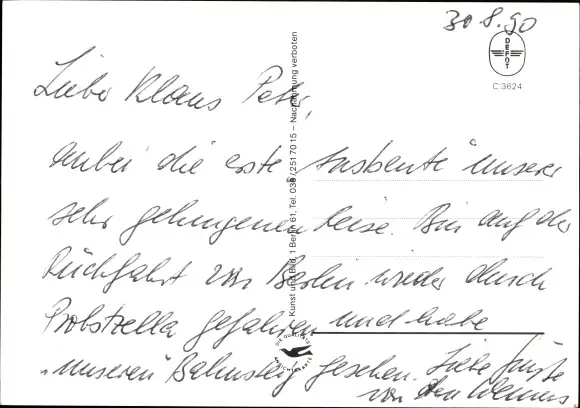 30.8.90
DEPOT
C 3624
Lieber Klaus Peter,
anbei die erste Ausbeute unserer
sehr gelungenen Reise. Bin auf der
Rückfahrt von Berlin wieder durch
Probstzella gefahren und habe
"unseren" Bahnsteig gesehen. Liebe Grüße
von
Kunst und Bild, 1 Berlin 61, Tel. 030 / 251 70 15 – Nachahmung verboten